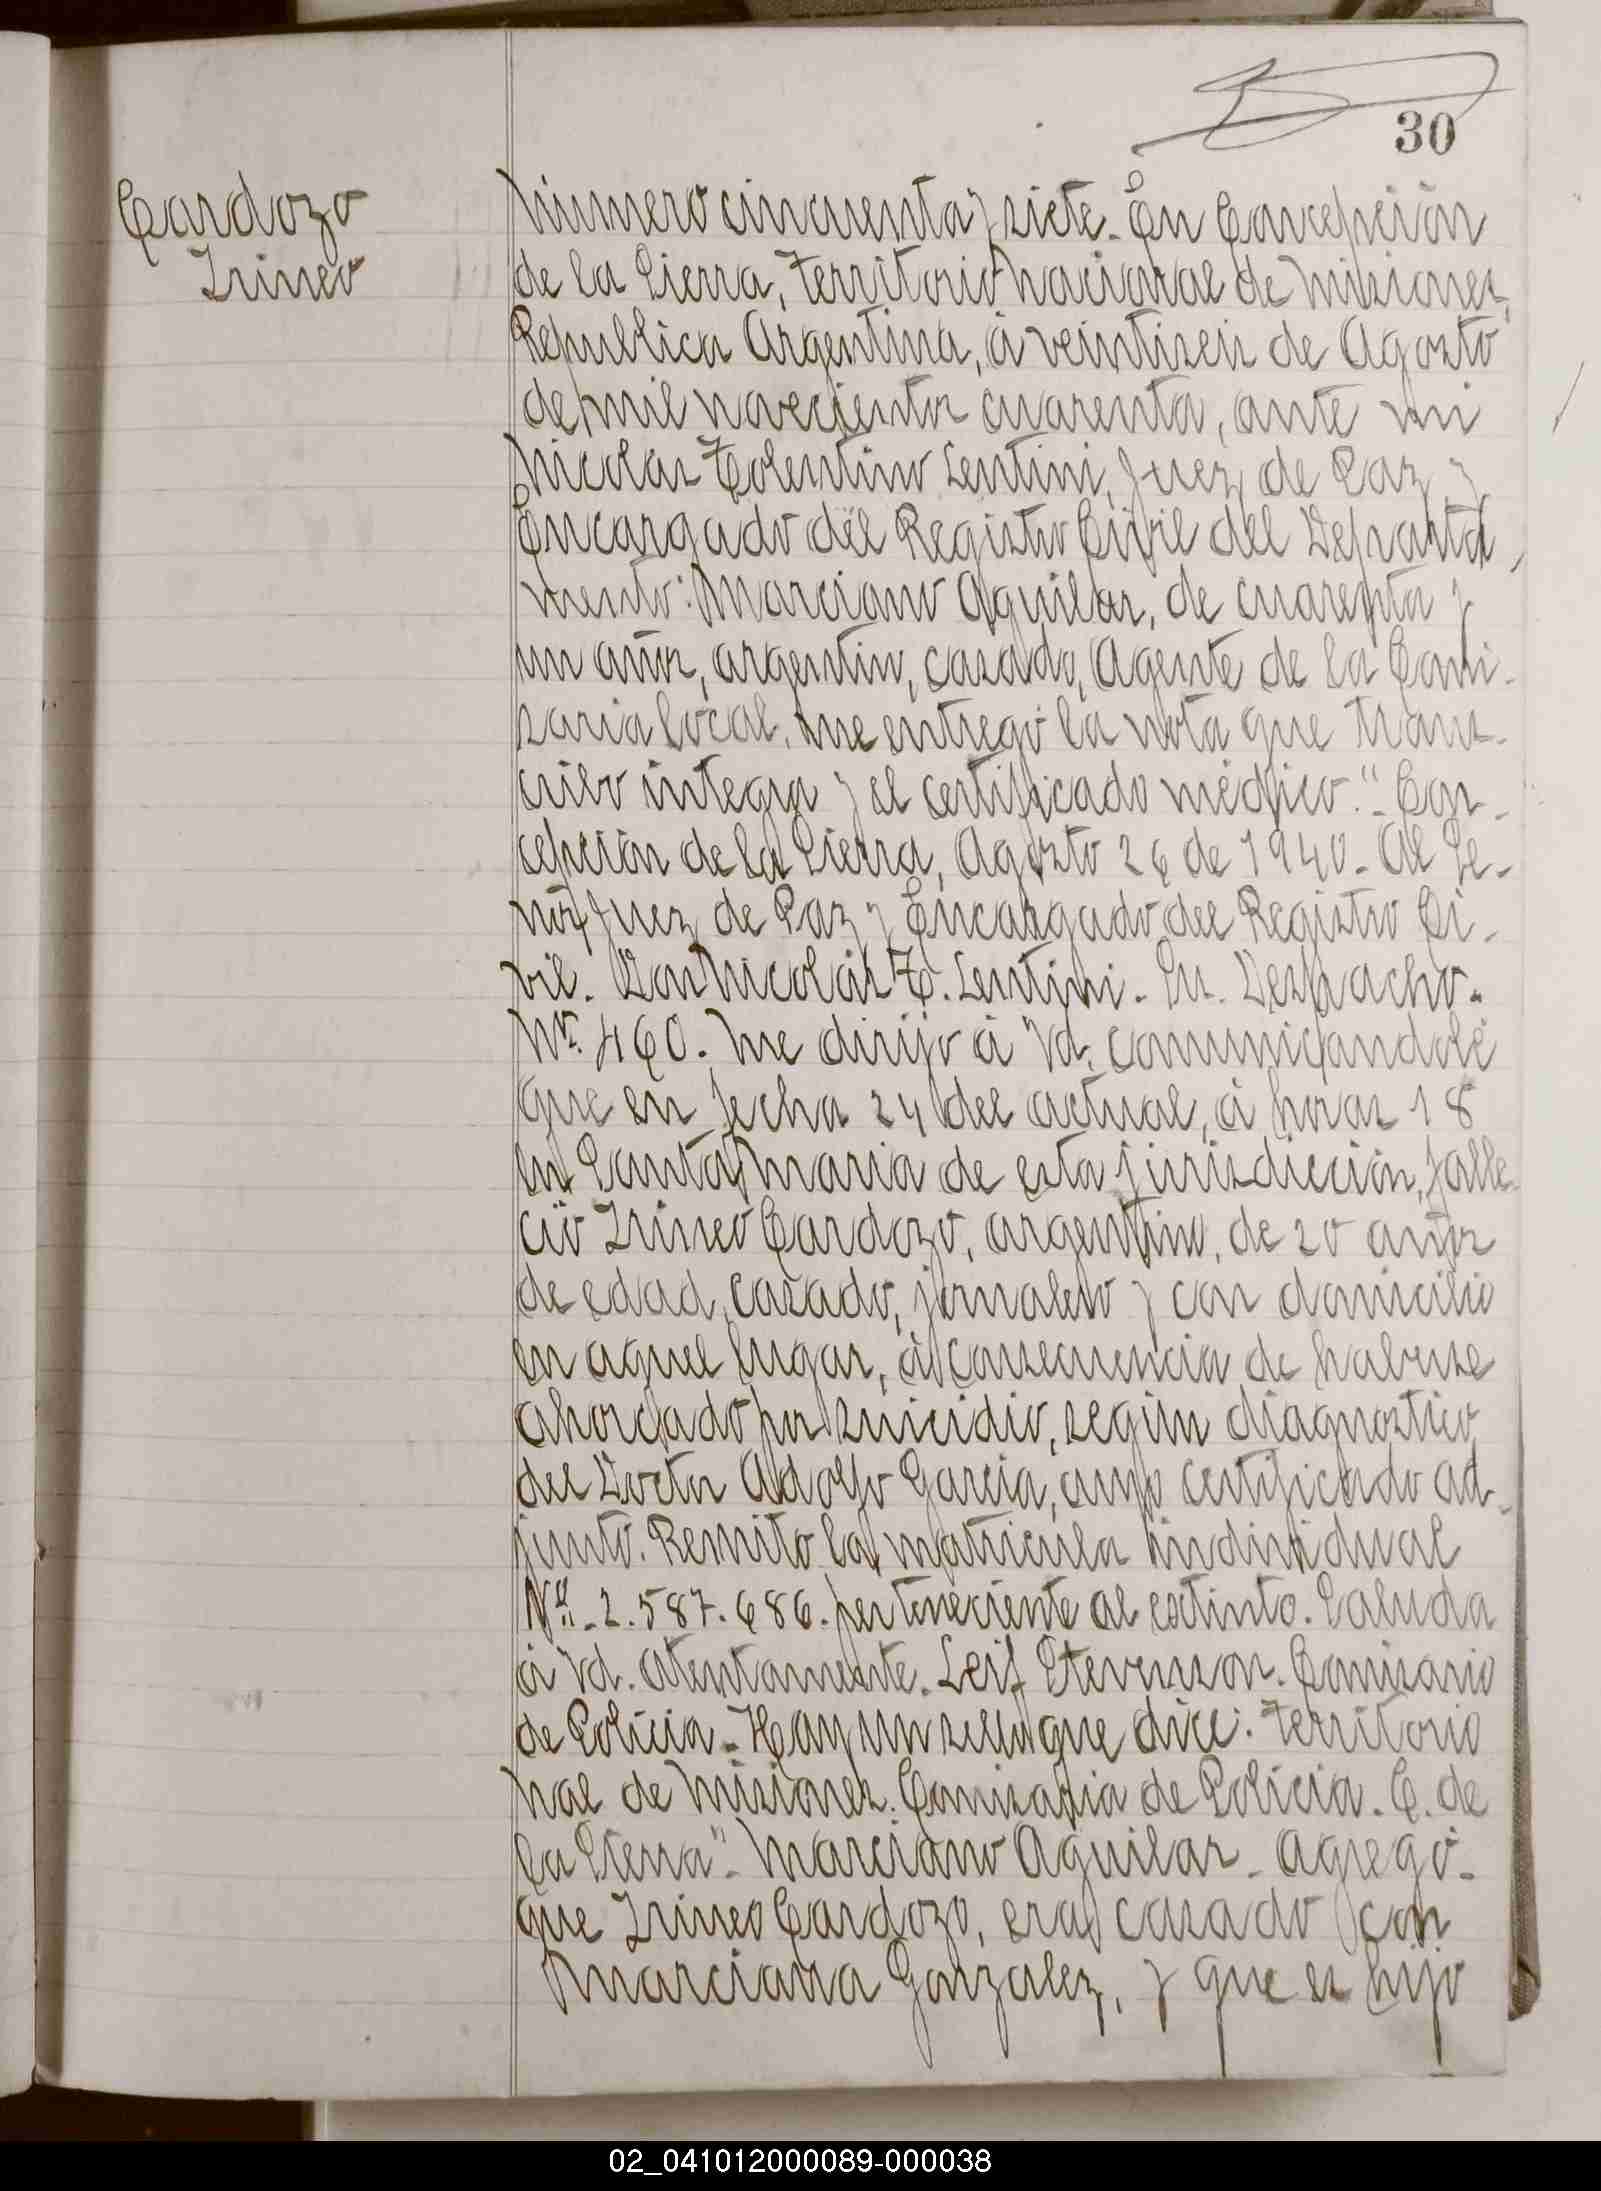 30
Cardozo
Irineo
Número cincuenta y siete. En Concepción
de la Sierra, Territorio Nacional de Misiones,
Republica Argentina, á veintiseis de Agosto
de mil novecientos cuarenta, ante mi
Nicolas Tolentino Lentini, Juez de Paz y
Encargado del Registro Civil del Departa
mento: Marciano Aguilar, de cuarenta y
un años, argentino, casado, Agente de la Comi-
saria local, me entregó la nota que trans-
cribo integra y el certificado médico: "Con-
cepción de la Sierra, Agosto 26 de 1940. Al Se-
ñor Juez de Paz y Encargado del Registro Ci-
vil. Don Nicolás T. Lentini. Su Despacho.
Nº. 460. Me dirijo á Vd. comunicandole
que en fecha 24 del actual, á horas 18
en Santa Maria de esta jurisdicción, falle-
ció Irineo Cardozo, argentino, de 20 años
de edad, casado, jornalero y con domicilio
en aquel lugar, á consecuencia de haberse
ahorcado por suicidio, según diagnostico
del Doctor Adolfo Garcia, cuyo certificado ad-
junto. Remito la matricula individual
Nº. 2.587.686. perteneciente al extinto. Saluda
á Vd. atentamente. Leif Stevenson. Comisario
de Policia. Hay un sello que dice: Territorio
Nal de Misiones. Comisaria de Policia. C. de
la Sierra". Marciano Aguilar. Agregó.
que Irineo Cardozo, era casado con
Marciana Gonzalez, y que es hijo
02_041012000089-000038